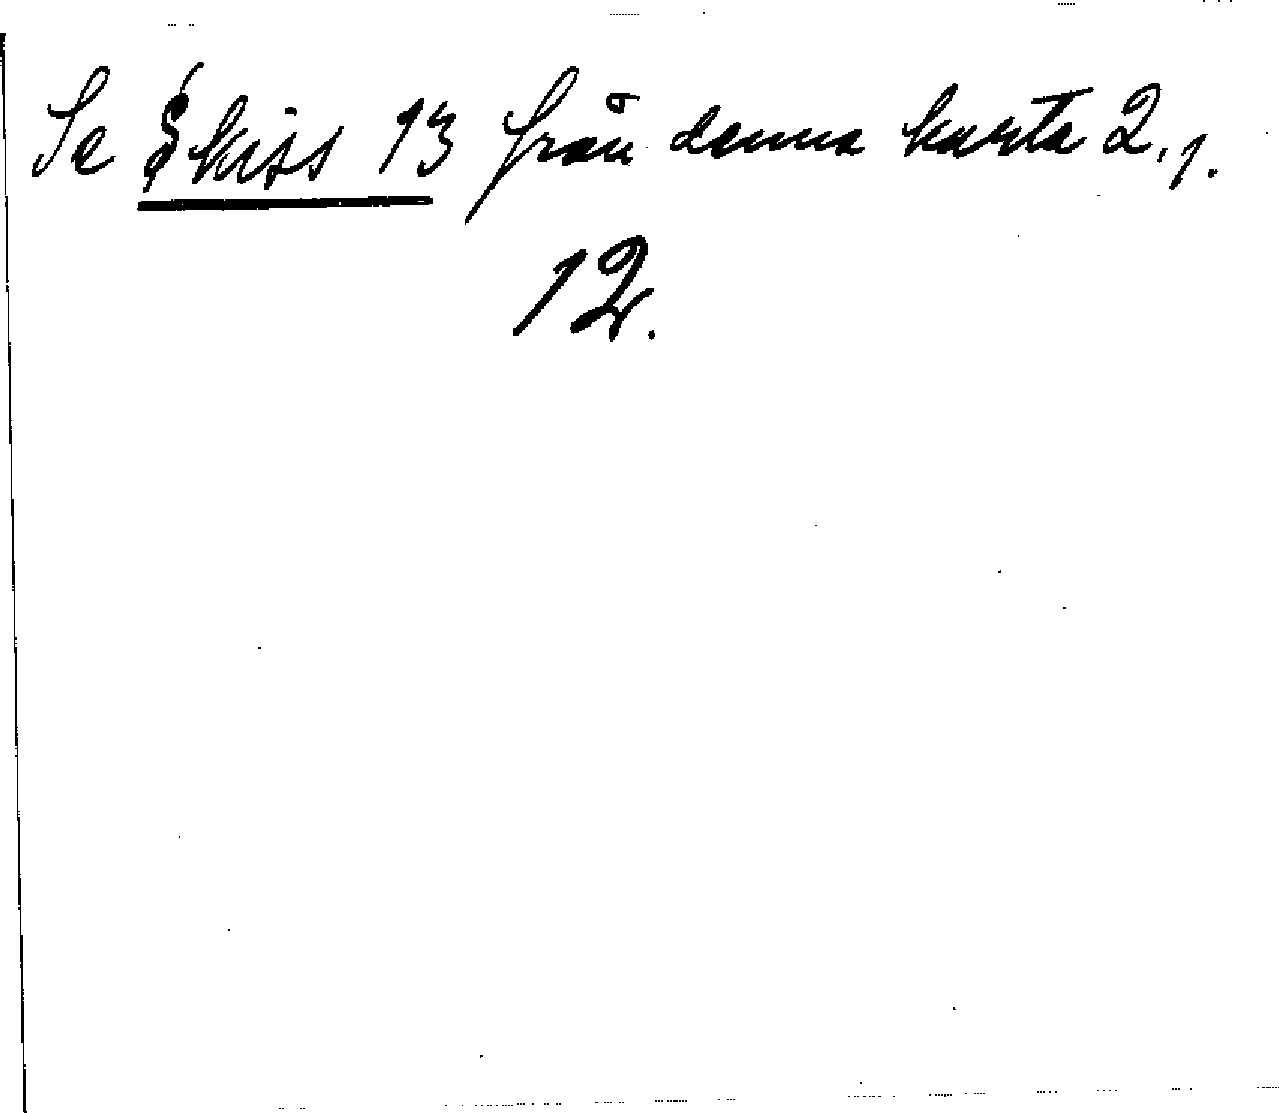 Se Skiss 13 från denna karta 2, 1.
12.